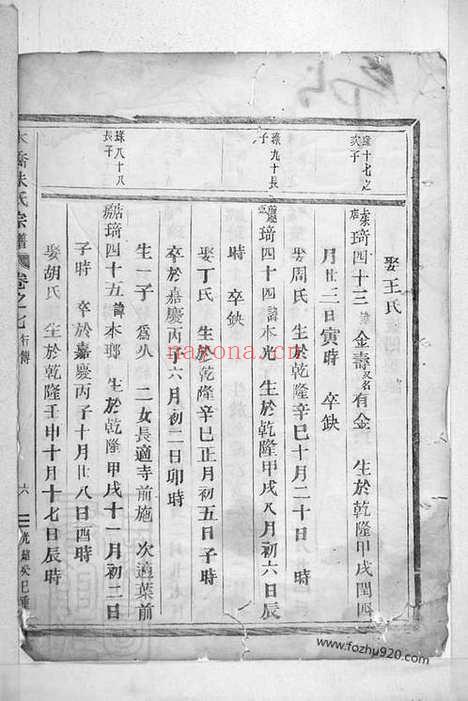 娶王氏
珠十七之
次子
琦四十三 諱 金壽 又名 有金 生於乾隆甲戌閏四
月廿三日寅時 卒缺
娶周氏 生於乾隆辛巳十月二十日 時
珠九十長
子
琦四十四 諱本光 生於乾隆甲戌八月初六日辰
時 卒缺
娶丁氏 生於乾隆辛巳正月初五日子時
卒於嘉慶丙子六月初二日卯時
生一子 為 二女長適寺前施 次適葉前
珠八十八
長子
琦四十五 諱本瑯 生於乾隆甲戌十一月初二日
子時 卒於嘉慶丙子十月廿八日酉時
娶胡氏 生於乾隆壬申十月十七日辰時
朱氏宗譜 卷之七 行傳 六
光緒癸巳
nayona.cn
www.fozhu920.com